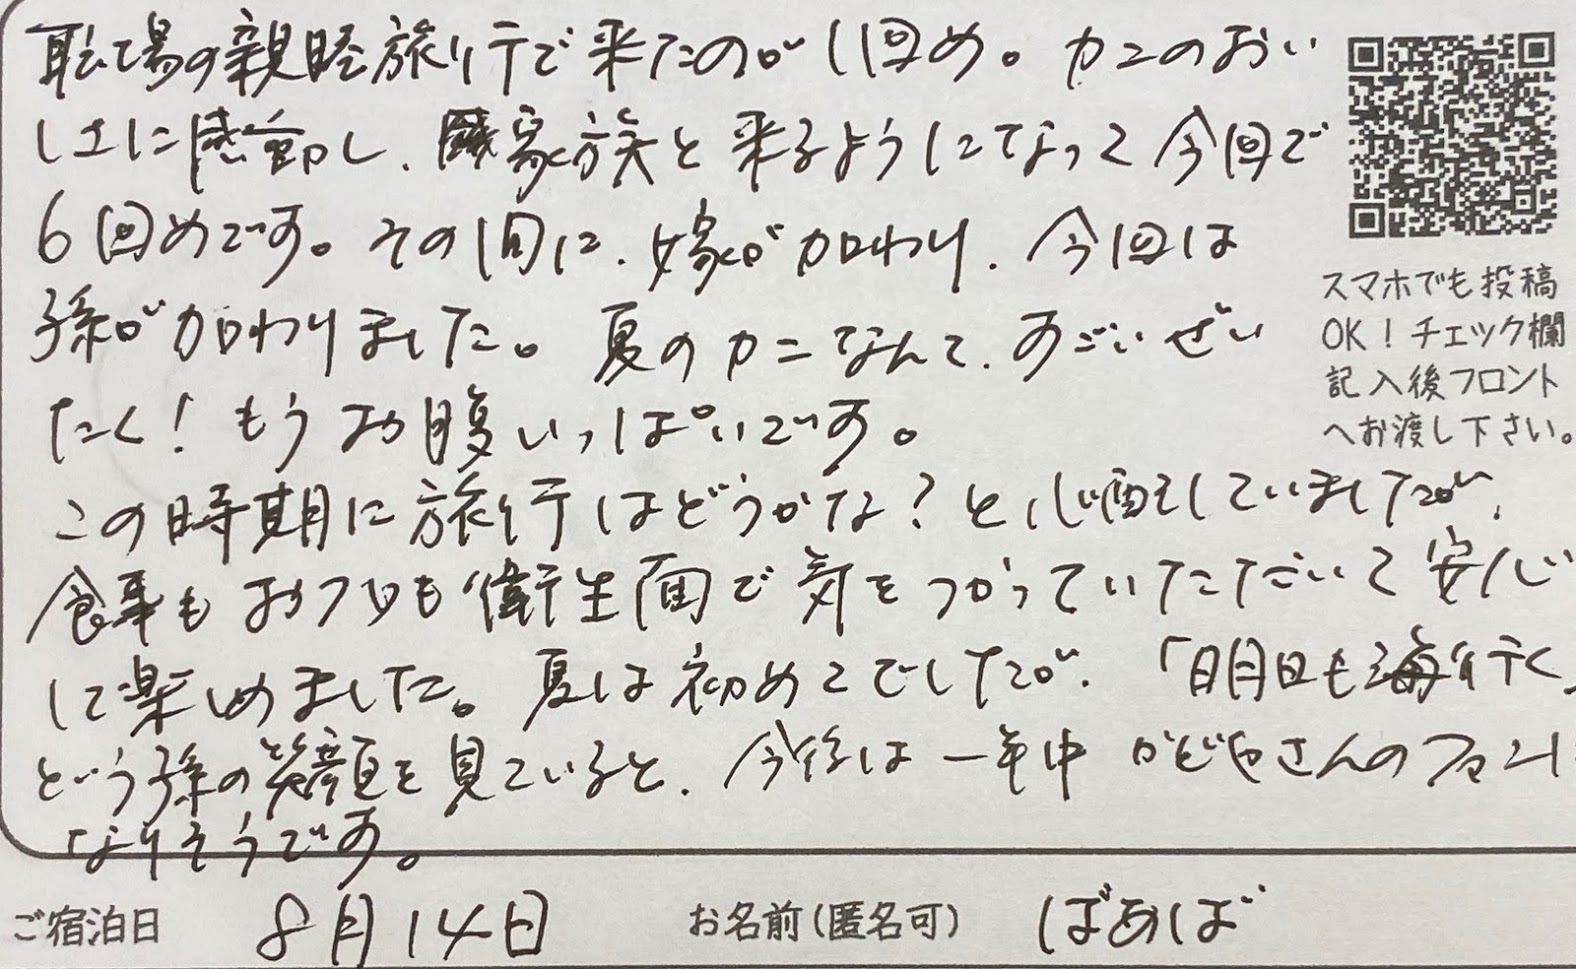 職場の親睦旅行で来たのが1回め。カニのおい
しさに感動し、家族と来るようになって今回で
6回めです。その間に、嫁が加わり、今回は
孫が加わりました。夏のカニなんて、すごいぜい
たく!もうお腹いっぱいです。
この時期に旅行はどうかな?と心配していましたが、
食事もおフロも衛生面で気をつかっていただいて安心
して楽しめました。夏は初めてでしたが、「明日も海行く」
という孫の笑顔を見ていると、今後は一年中かどやさんのファンに
なりそうです。
スマホでも投稿
OK!チェック欄
記入後フロント
へお渡し下さい。
ご宿泊日 8月14日 お名前(匿名可) ばあば